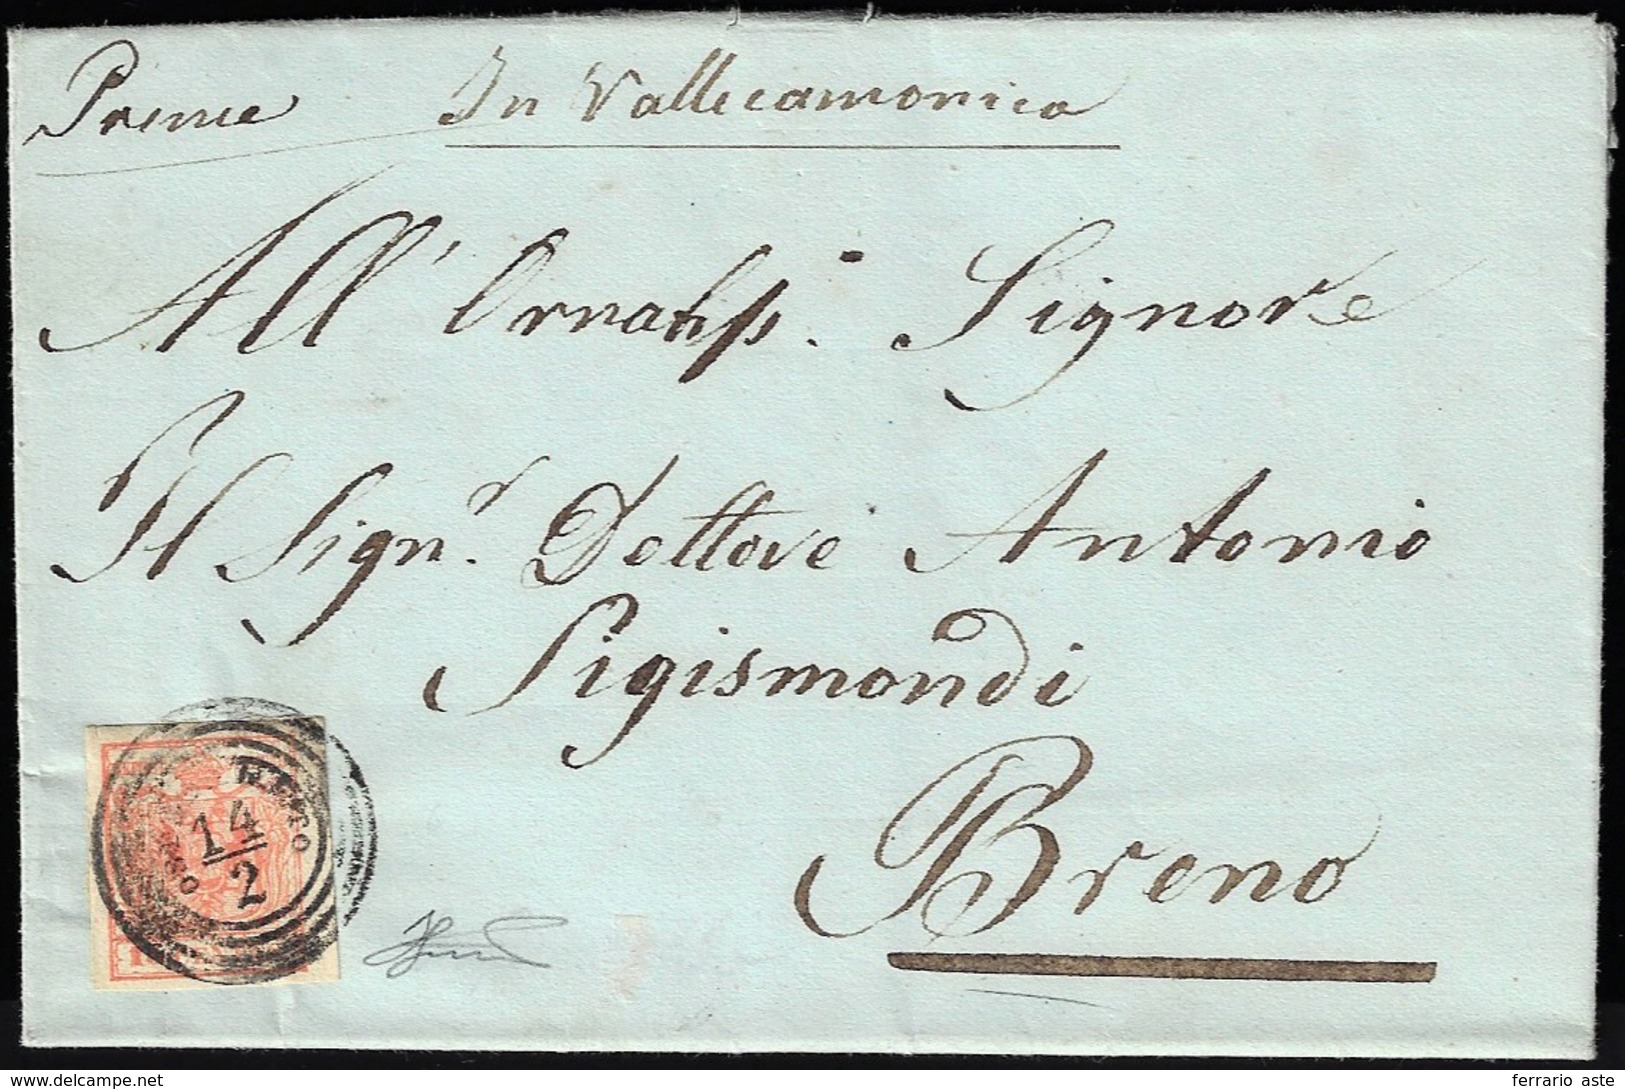 Preme In Vallecamonica
All' Ornatissp. Signore
Il Sign.r Dottore Antonio
Sigismondi
Breno
14
2
delcampe.net
ferrario aste